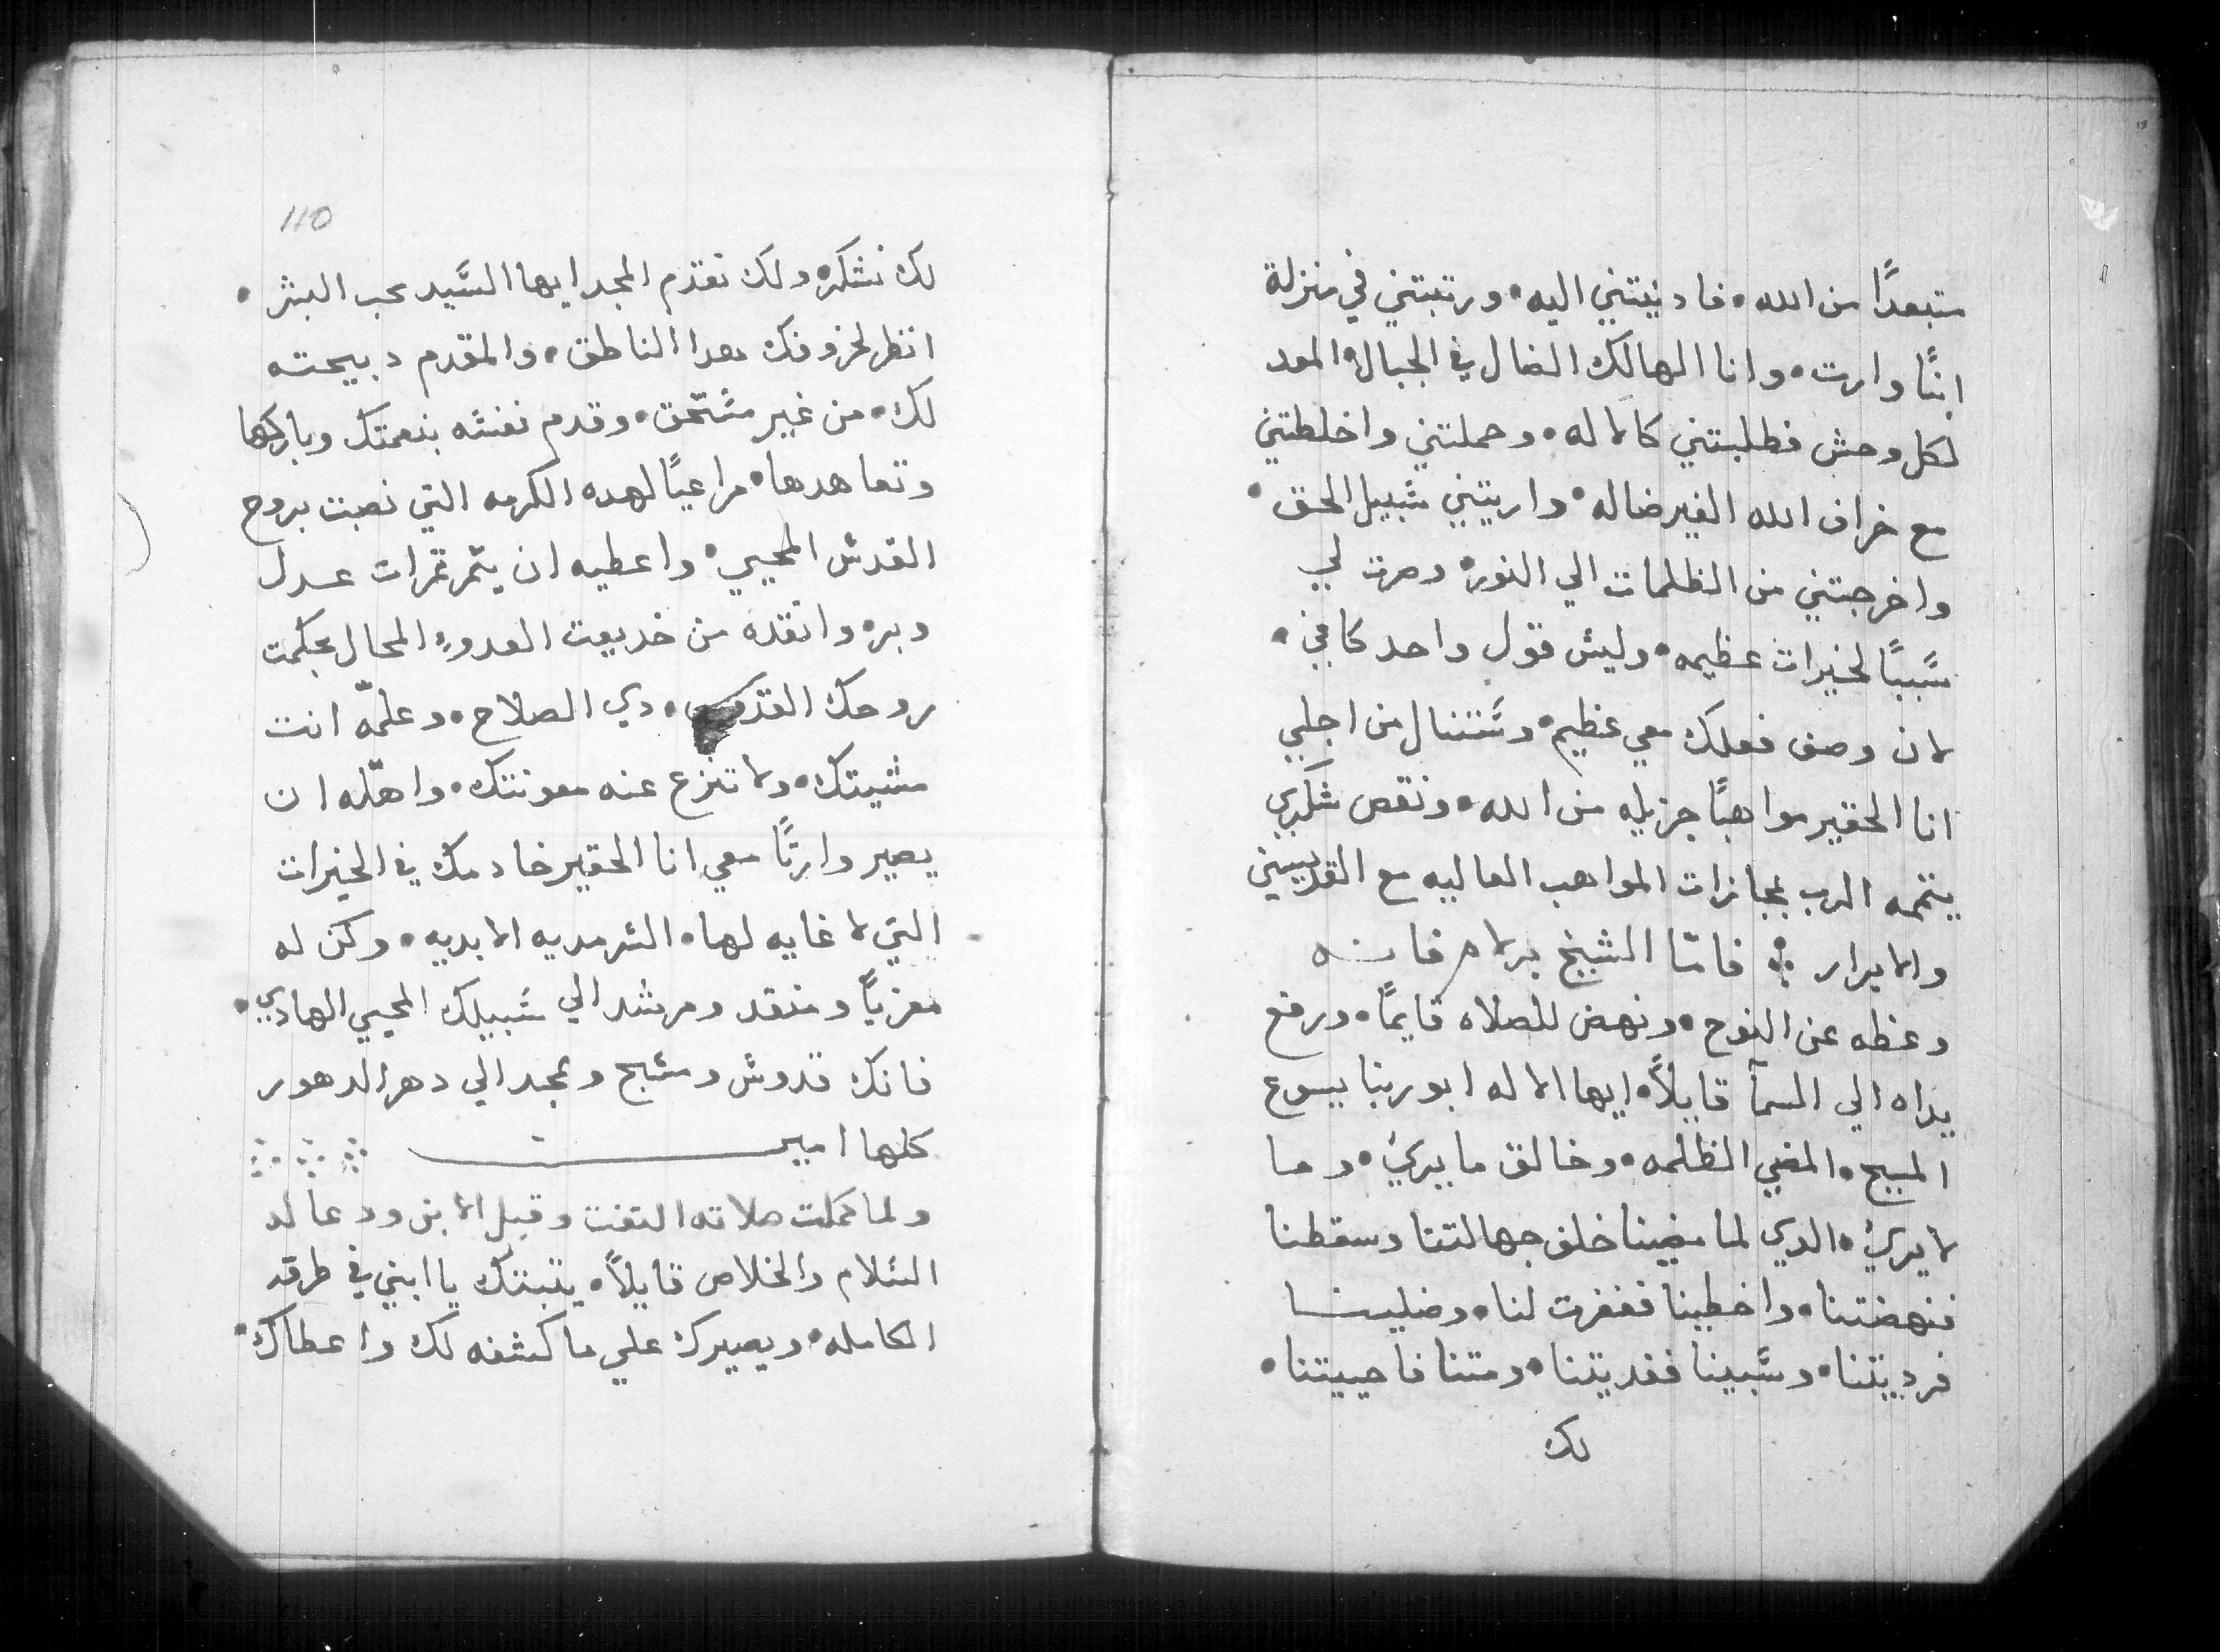 متبعدًا من الله • فادنيتني اليه • ورتبتني في منزلة
ابنًا وارت • وانا الهالك الضال في الجبال • المعد
لكل وحش فطلبتني كالاله • وحملتني واخلطتني
مع خراف الله الغير ضاله • واريتني سبيل الحق •
واخرجتني من الظلمات الي النور • وصرت لي
سببًا لخيرات عظيمه • وليس قول واحد كافي •
لان وصف فعلك معي عظيم • وستنال من اجلي
انا الحقير مواهبًا جزيله من الله • ونقص شكري
يتممه الرب بمجازات المواهب العاليه مع القديسين
والابرار ⁘ فامّا الشيخ برلام فانه
وعظه عن النوح • ونهض للصلاه قايمًا • ورفع
يداه الي السمآ قايلاً • ايها الاله ابو ربنا يسوع
المسيح • المضي الظلمه • وخالق ما يري • وما
لا يري • الدي لما مضينا خلف جهالتنا وسقطنا
فنهضتنا • واخطينا فغفرت لنا • وضلينا
فرديتنا • وسبينا ففديتنا • ومتنا فاحييتنا •
لك
110
لك نشكر • ولك نقدم المجد ايها السيد محب البشر •
انظر لخروفك هدا الناطق • والمقدم دبيحته
لك • من غير مستحق • وقدم نفسه بنعمتك وباركها
وتعاهدها • مراعيًا لهده الكرمه التي نصبت بروح
القدس المحيي • واعطيه ان يتمر تمرات عدل
وبر • وانقده من خديعت العدو • المحال بحكمت
روحك القدوس • دي الصلاح • وعلمّه انت
مشيتك • ولا تنزع عنه معونتك • واهّله ان
يصير وارتًا معي انا الحقير خادمك في الخيرات
التي لا غايه لها • السرمديه الابديه • وكن له
معزيًا ومنقد ومرشد الي سبيلك المحيي الهادي •
فانك قدوس ومسبح وممجد الي دهر الدهور
كلها امين ⁘ ⁘ ⁘
ولما كملت صلاته التفت وقبل الابن ودعا له
السلام والخلاص قايلاً • يتبتك يا ابني في طرقه
الكامله • ويصيرك علي ما كشفه لك واعطاك •